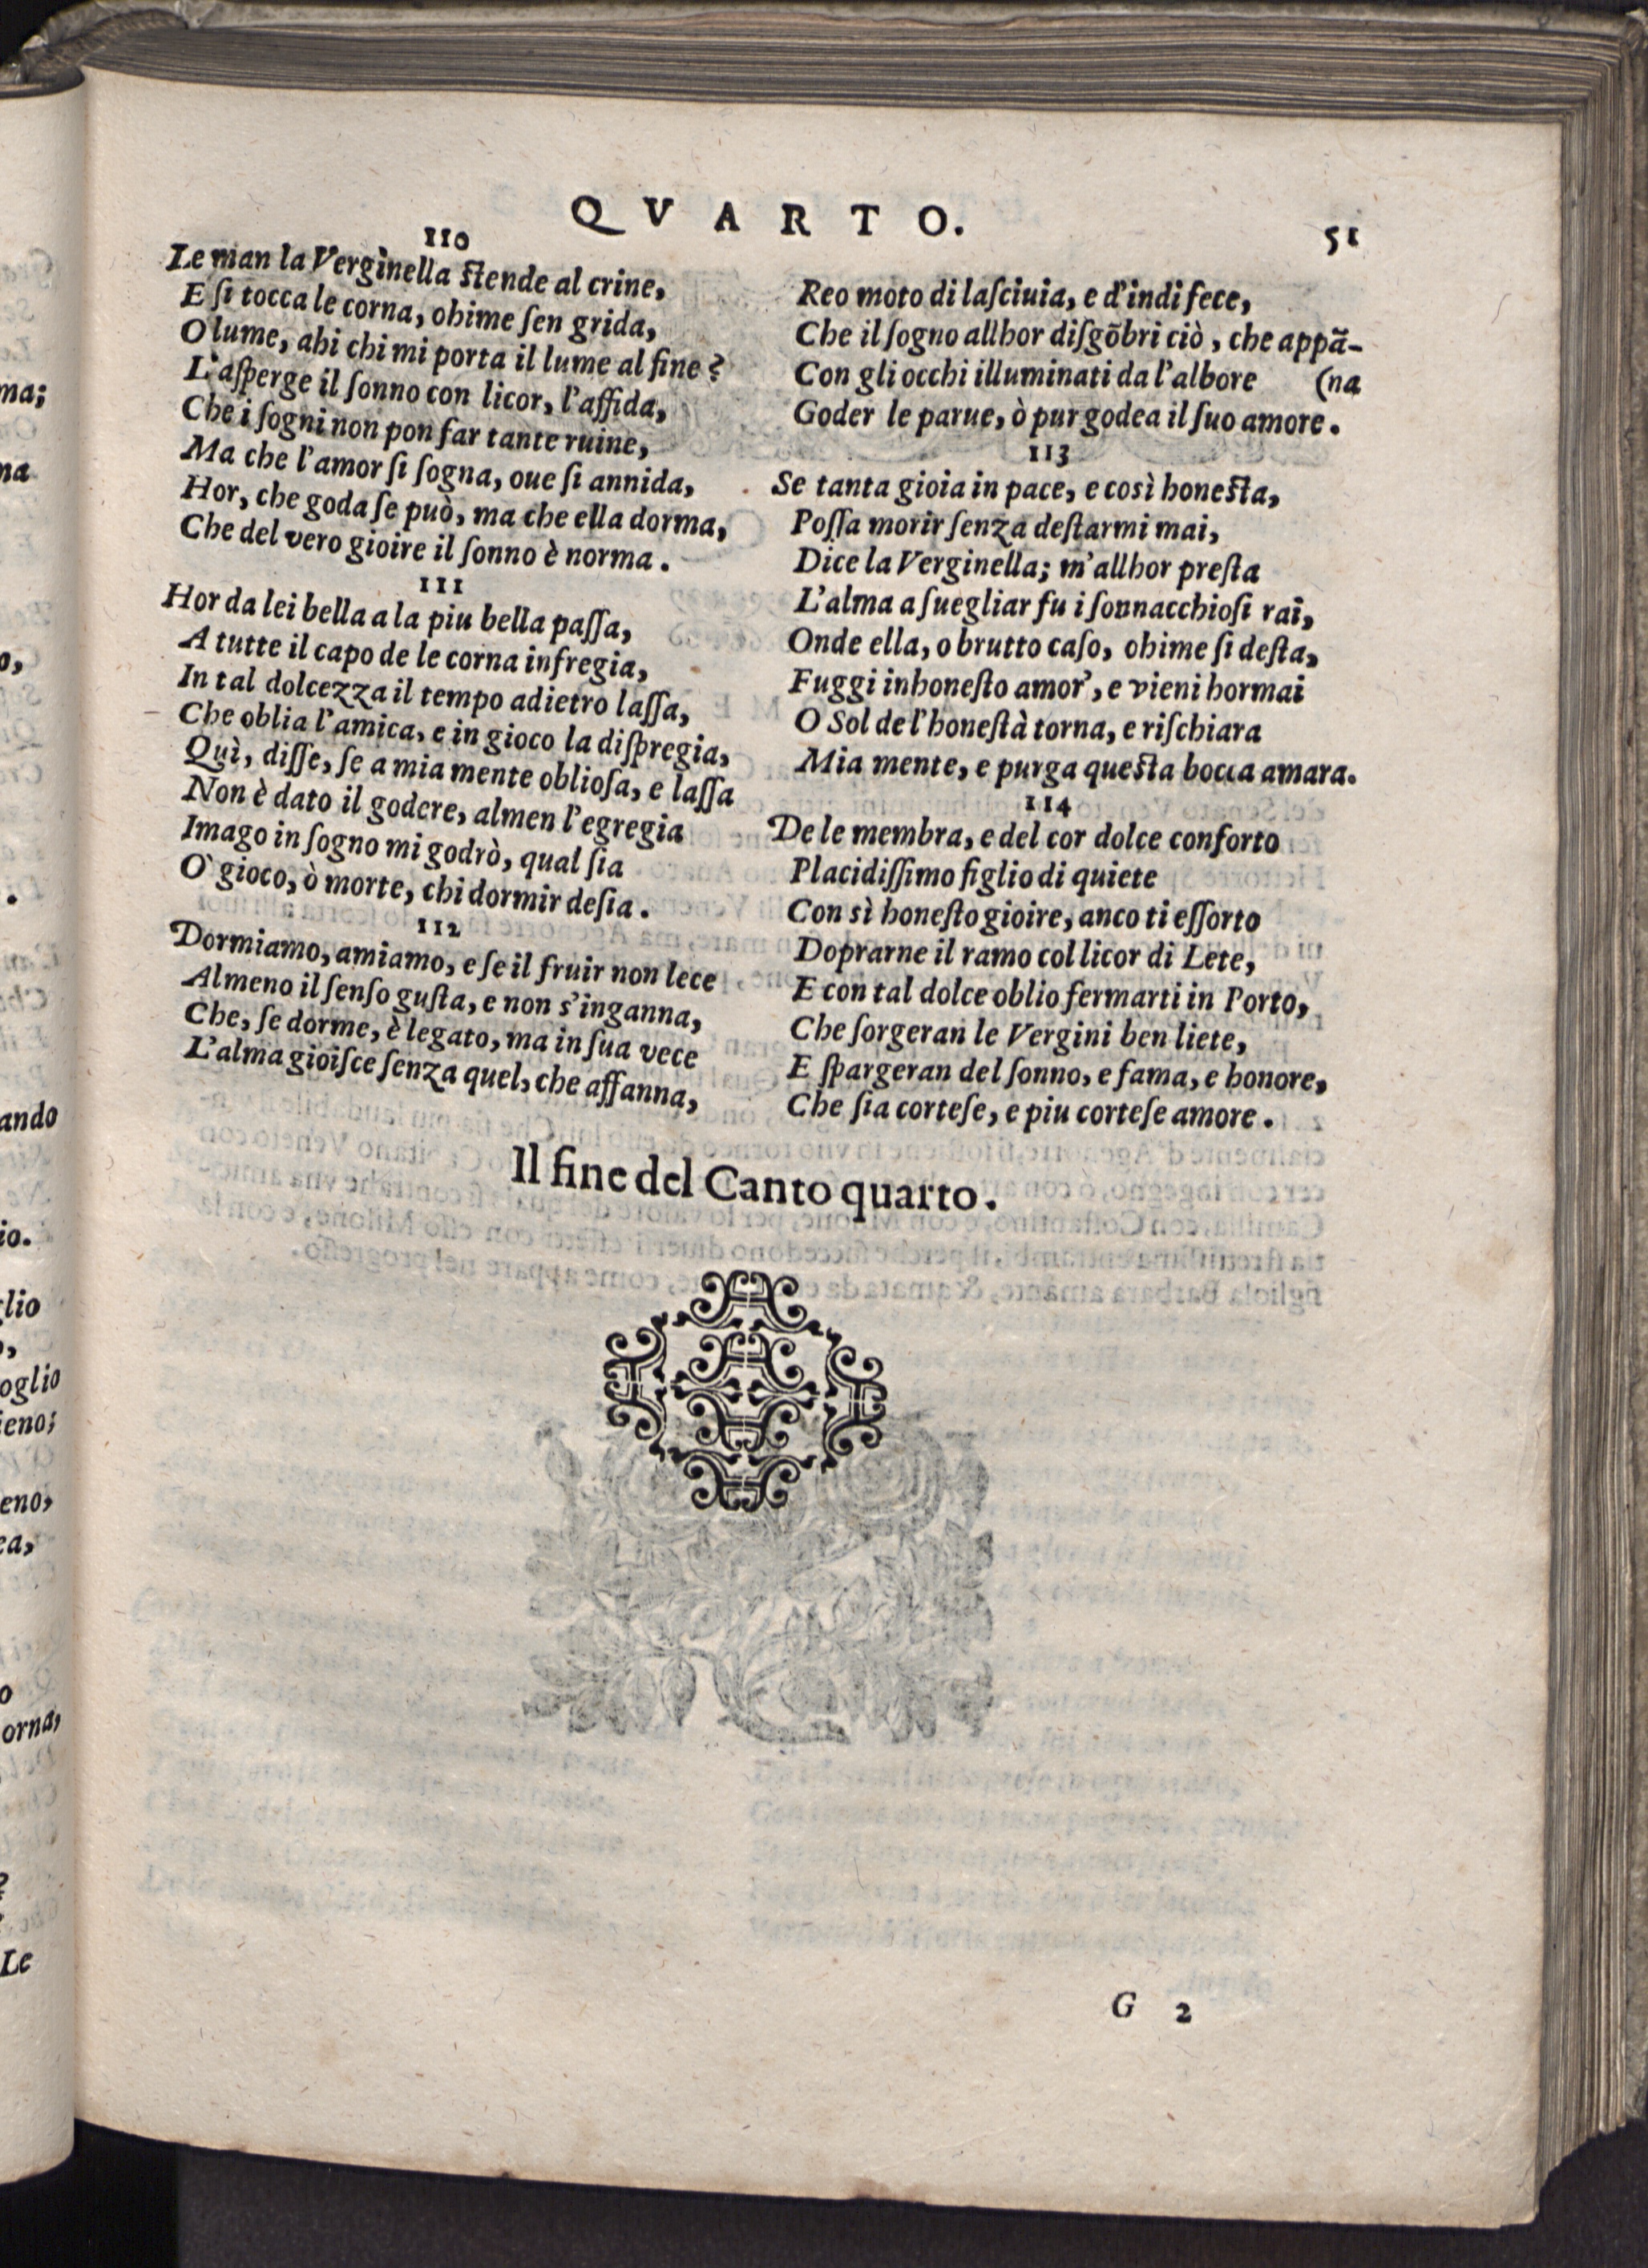 QVARTO.
51
110
Le man la Verginella ſtende al crine,
E ſi tocca le corna, ohime ſen grida,
O lume, ahi chi mi porta il lume al fine?
L'aſperge il ſonno con licor, l'affida,
Che i ſogni non pon far tante ruine,
Ma che l'amor ſi ſogna, oue ſi annida,
Hor, che goda ſe può, ma che ella dorma,
Che del vero gioire il ſonno è norma.
111
Hor da lei bella a la piu bella paſſa,
A tutte il capo de le corna infregia,
In tal dolcezza il tempo adietro laſſa,
Che oblia l'amica, e in gioco la diſpregia,
Quì, diſſe, ſe a mia mente oblioſa, e laſſa
Non è dato il godere, almen l'egregia
Imago in ſogno mi godrò, qual ſia
O gioco, ò morte, chi dormir deſia.
112
Dormiamo, amiamo, e ſe il fruir non lece
Almeno il ſenſo guſta, e non s'inganna,
Che, ſe dorme, è legato, ma in ſua vece
L'alma gioiſce ſenza quel, che affanna,
Reo moto di laſciuia, e d'indi fece,
Che il ſogno allhor diſgõbri ciò, che appã-
Con gli occhi illuminati da l'albore (na
Goder le parue, ò pur godea il ſuo amore.
113
Se tanta gioia in pace, e così honeſta,
Poſſa morir ſenza deſtarmi mai,
Dice la Verginella; m'allhor preſta
L'alma a ſuegliar fu i ſonnacchioſi rai,
Onde ella, o brutto caſo, ohime ſi deſta,
Fuggi inhoneſto amor', e vieni hormai
O Sol de l'honeſtà torna, e riſchiara
Mia mente, e purga queſta bocca amara.
114
De le membra, e del cor dolce conforto
Placidiſſimo figlio di quiete
Con sì honeſto gioire, anco ti eſſorto
Doprarne il ramo col licor di Lete,
E con tal dolce oblio fermarti in Porto,
Che ſorgeran le Vergini ben liete,
E ſpargeran del ſonno, e fama, e honore,
Che ſia corteſe, e piu corteſe amore.
Il fine del Canto quarto.
G 2